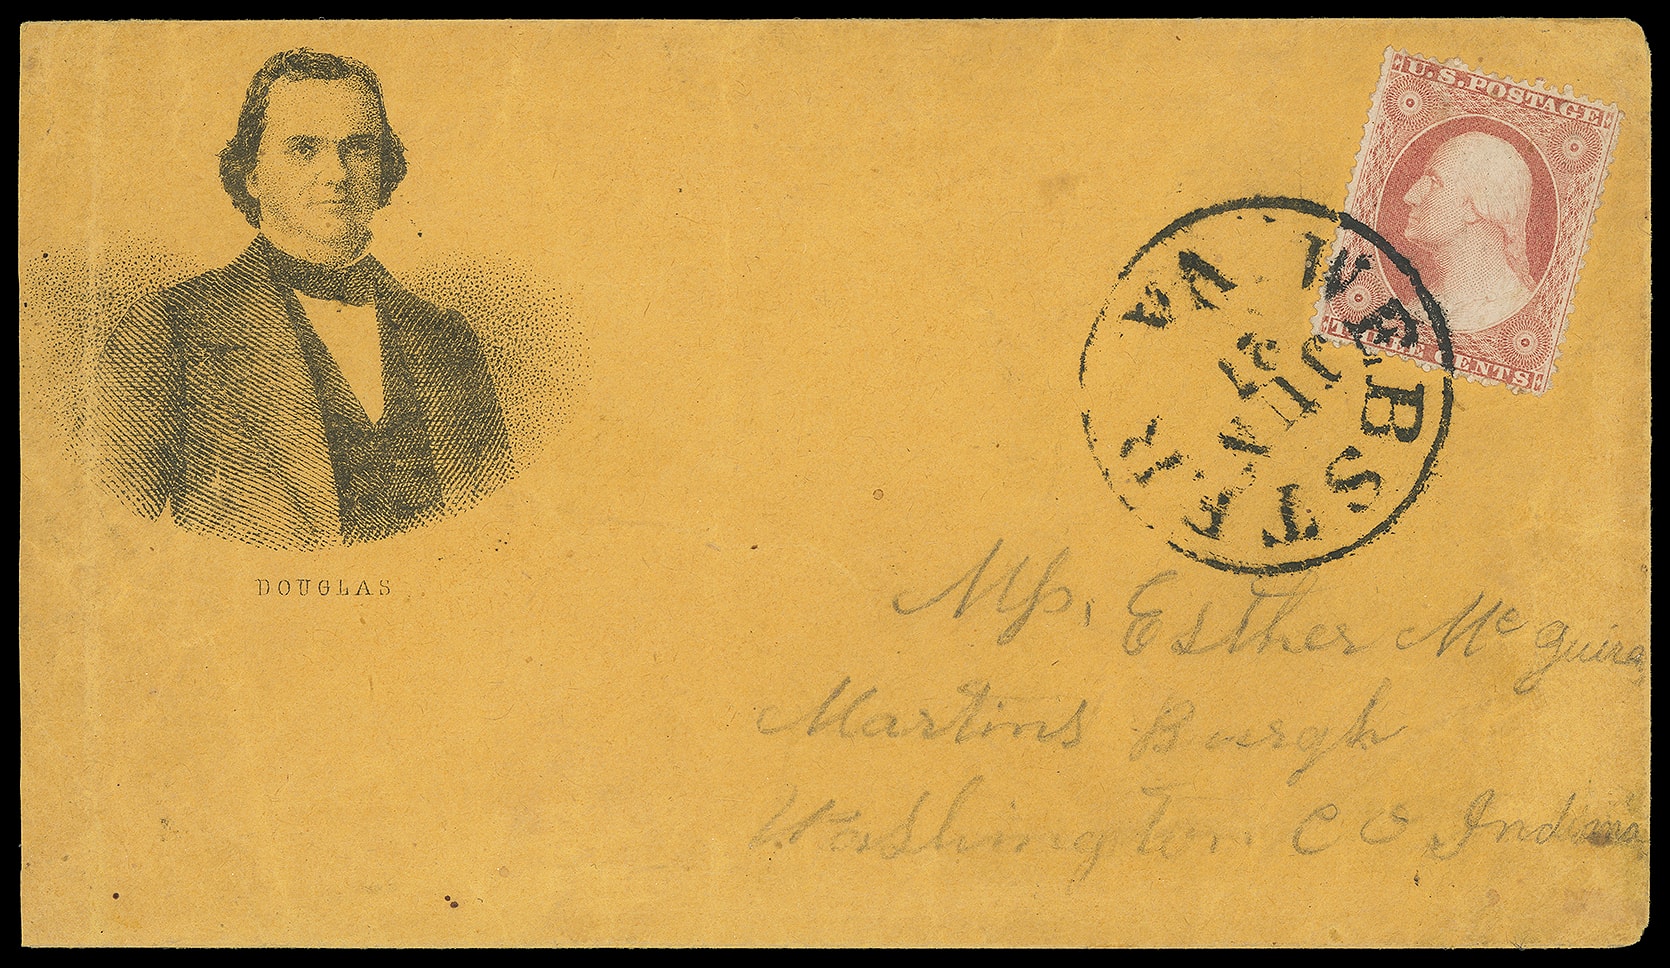 U.S. POSTAGE
THREE CENTS
WEBSTER VA
JUN
21
DOUGLAS
Mrs, Esther Mc Guire
Martins Burgh
Washington CO Indiana